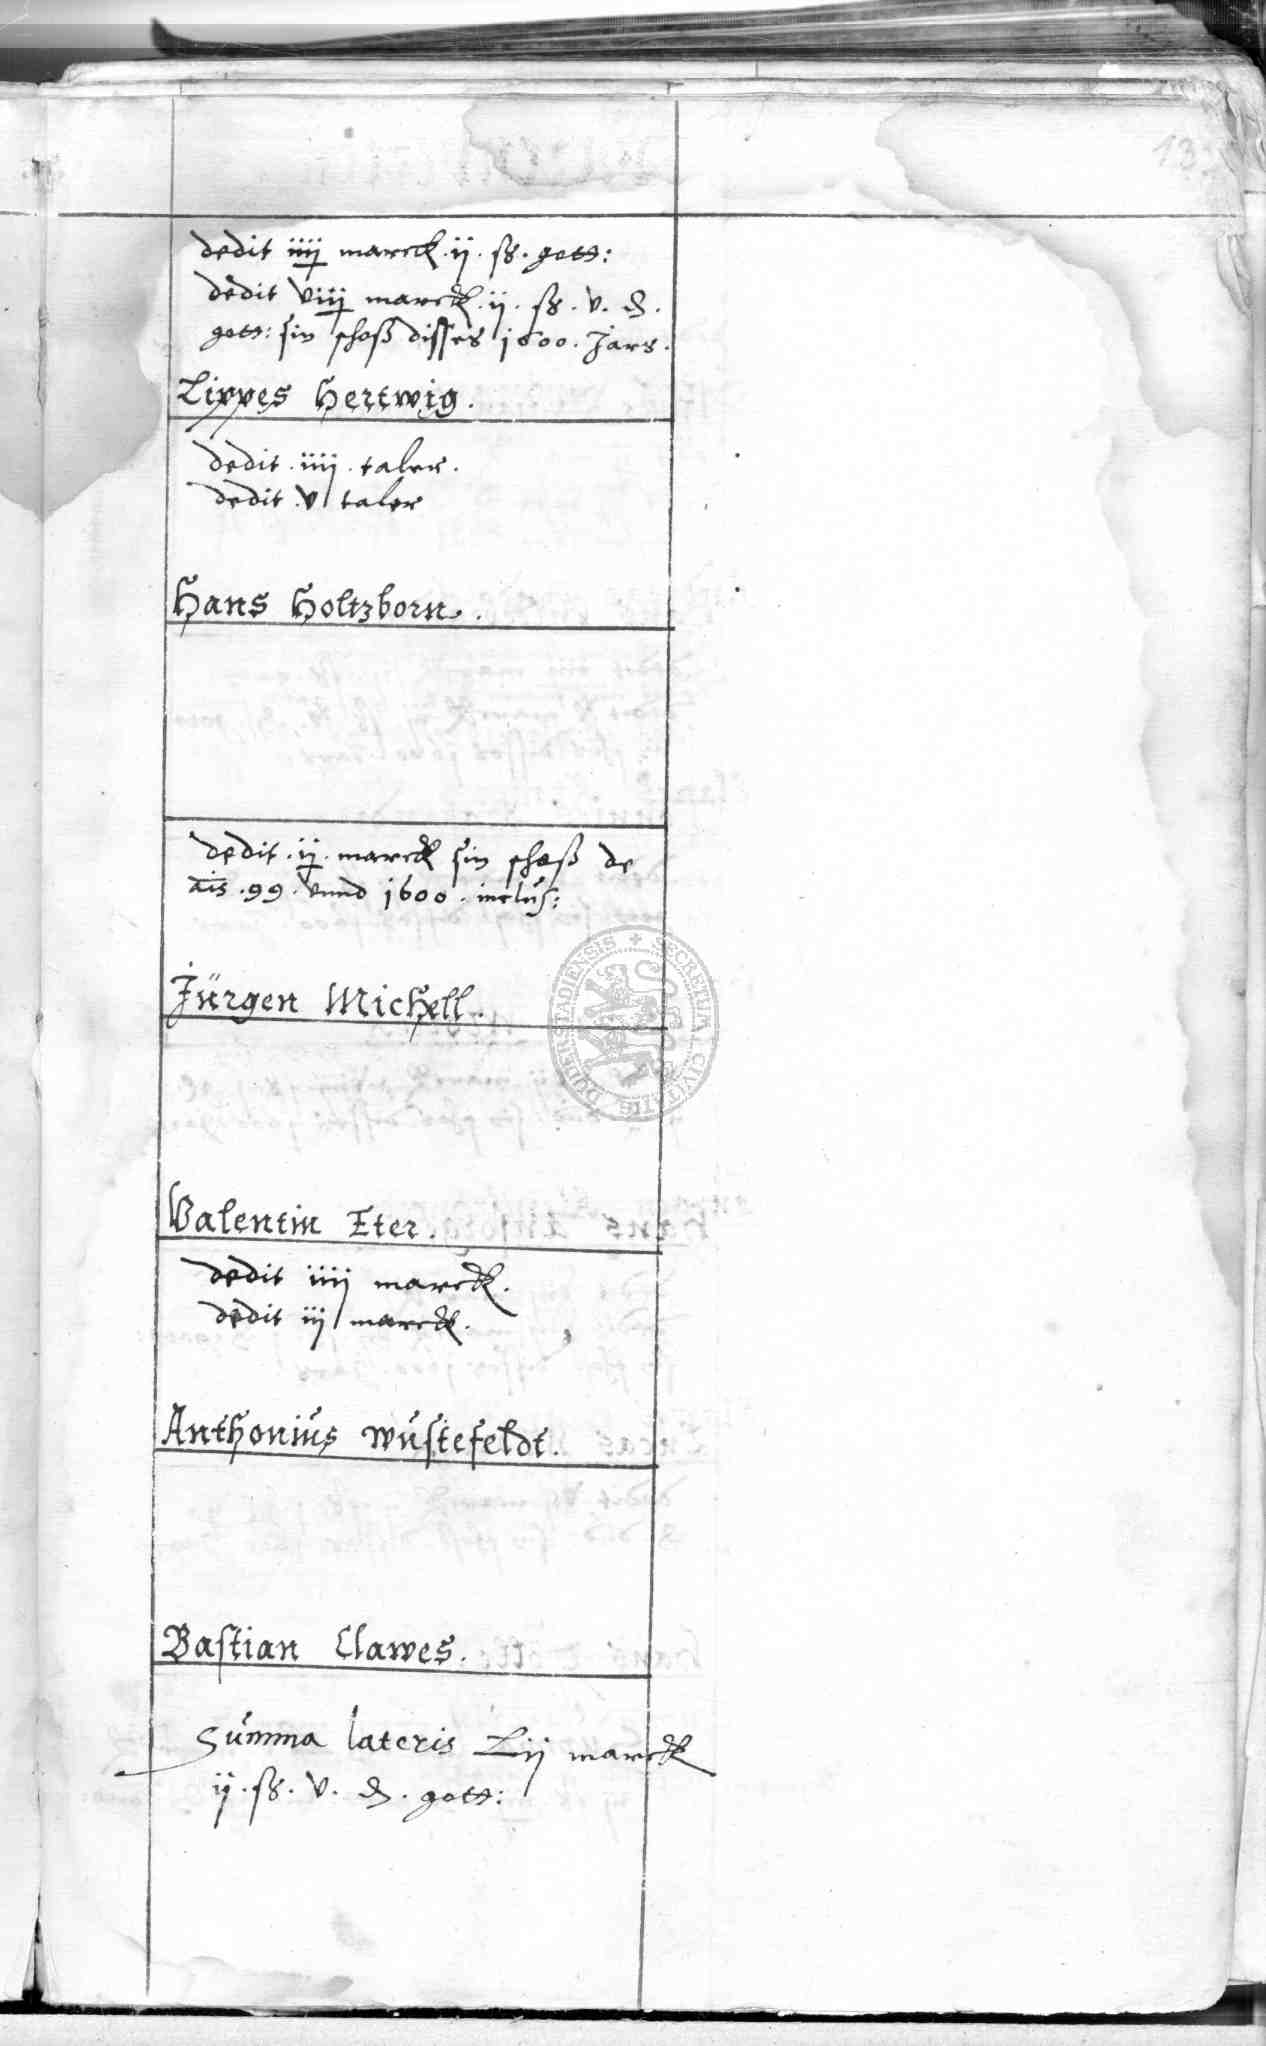 13
dedit iiij marck. ij. ß. gott:
dedit viij marck. ij. ß. v. ₰.
gott: sin schoß disses 1600. Jars.
Lippes Hertwig.
dedit. iiij. taler.
dedit. v taler
Hans Holtzborn.
dedit. ij. marck sin schoß de
ais. 99. vnnd 1600. inclus:
Jürgen Michell.
Valentin Eter.
dedit iiij marck.
dedit iij marck.
Anthonius Wustefeldt.
Bastian Clawes.
Summa lateris Lij marck
ij. ß. v. ₰. gott:
SECRETUM CIVITATIS DUDERSTADIENSIS